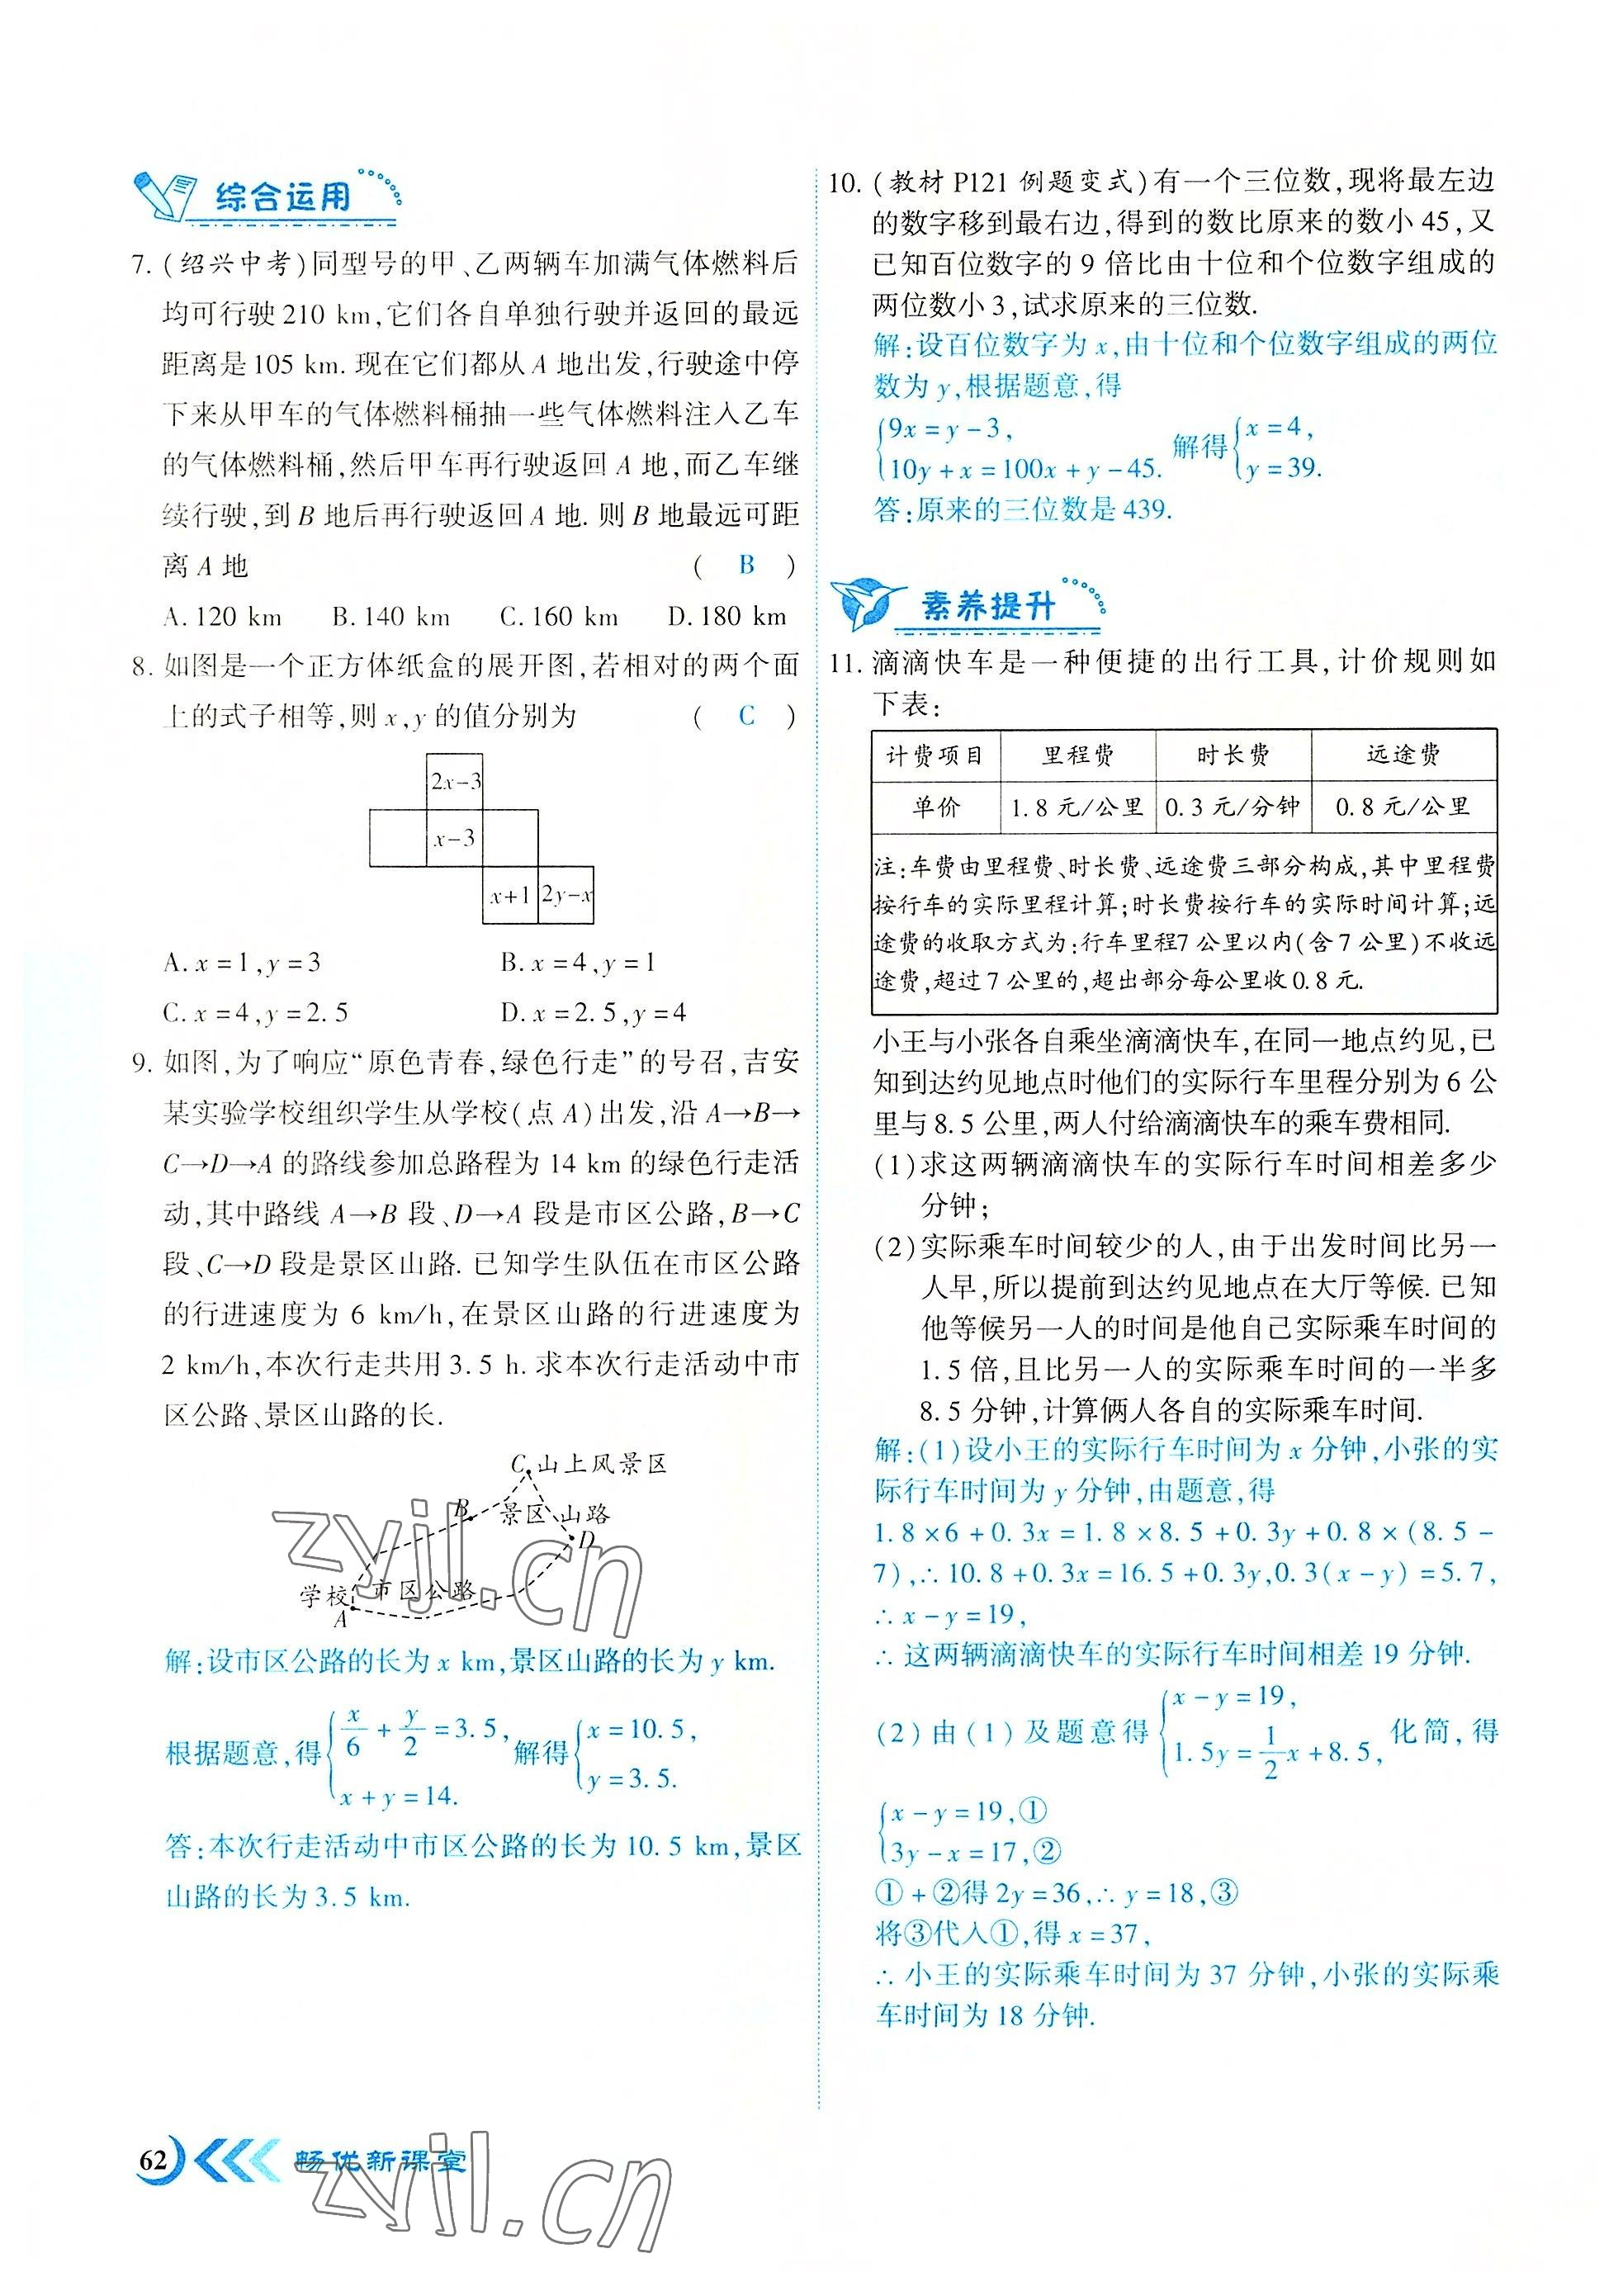 综合运用
7. (绍兴中考)同型号的甲、乙两辆车加满气体燃料后
均可行驶210 km,它们各自单独行驶并返回的最远
距离是105 km. 现在它们都从A 地出发,行驶途中停
下来从甲车的气体燃料桶抽一些气体燃料注入乙车
的气体燃料桶,然后甲车再行驶返回A 地,而乙车继
续行驶,到B 地后再行驶返回A 地. 则B 地最远可距
离A 地 ( B )
A. 120 km B. 140 km C. 160 km D. 180 km
8. 如图是一个正方体纸盒的展开图,若相对的两个面
上的式子相等,则x,y的值分别为 ( C )
2x-3
x-3
x+1 2y-x
A. x=1,y=3 B. x=4,y=1
C. x=4,y=2.5 D. x=2.5,y=4
9. 如图,为了响应“原色青春,绿色行走”的号召,吉安
某实验学校组织学生从学校(点A)出发,沿A→B→
C→D→A 的路线参加总路程为14 km的绿色行走活
动,其中路线A→B 段、D→A 段是市区公路,B→C
段、C→D 段是景区山路. 已知学生队伍在市区公路
的行进速度为 6 km/h,在景区山路的行进速度为
2 km/h,本次行走共用3.5 h. 求本次行走活动中市
区公路、景区山路的长.
C 山上风景区
B 景区山路
D
学校 市区公路
A
解:设市区公路的长为x km,景区山路的长为y km.
根据题意,得{x/6+y/2=3.5, x+y=14. 解得{x=10.5, y=3.5.
答:本次行走活动中市区公路的长为10.5 km,景区
山路的长为3.5 km.
62 畅优新课堂
10. (教材P121例题变式)有一个三位数,现将最左边
的数字移到最右边,得到的数比原来的数小45,又
已知百位数字的9倍比由十位和个位数字组成的
两位数小3,试求原来的三位数.
解:设百位数字为x,由十位和个位数字组成的两位
数为y,根据题意,得
{9x=y-3, 10y+x=100x+y-45. 解得{x=4, y=39.
答:原来的三位数是439.
素养提升
11. 滴滴快车是一种便捷的出行工具,计价规则如
下表:
计费项目 里程费 时长费 远途费
单价 1.8元/公里 0.3元/分钟 0.8元/公里
注:车费由里程费、时长费、远途费三部分构成,其中里程费
按行车的实际里程计算;时长费按行车的实际时间计算;远
途费的收取方式为:行车里程7公里以内(含7公里)不收远
途费,超过7公里的,超出部分每公里收0.8元.
小王与小张各自乘坐滴滴快车,在同一地点约见,已
知到达约见地点时他们的实际行车里程分别为6公
里与8.5公里,两人付给滴滴快车的乘车费相同.
(1)求这两辆滴滴快车的实际行车时间相差多少
分钟;
(2)实际乘车时间较少的人,由于出发时间比另一
人早,所以提前到达约见地点在大厅等候. 已知
他等候另一人的时间是他自己实际乘车时间的
1.5倍,且比另一人的实际乘车时间的一半多
8.5分钟,计算俩人各自的实际乘车时间.
解:(1)设小王的实际行车时间为x分钟,小张的实
际行车时间为y分钟,由题意,得
1.8×6+0.3x=1.8×8.5+0.3y+0.8×(8.5-
7),∴10.8+0.3x=16.5+0.3y,0.3(x-y)=5.7,
∴x-y=19,
∴这两辆滴滴快车的实际行车时间相差19分钟.
(2)由(1)及题意得{x-y=19, 1.5y=1/2x+8.5, 化简,得
{x-y=19,① 3y-x=17,②
①+②得2y=36,∴y=18,③
将③代入①,得x=37,
∴小王的实际乘车时间为37分钟,小张的实际乘
车时间为18分钟.
zyjl.cn
zyjl.cn